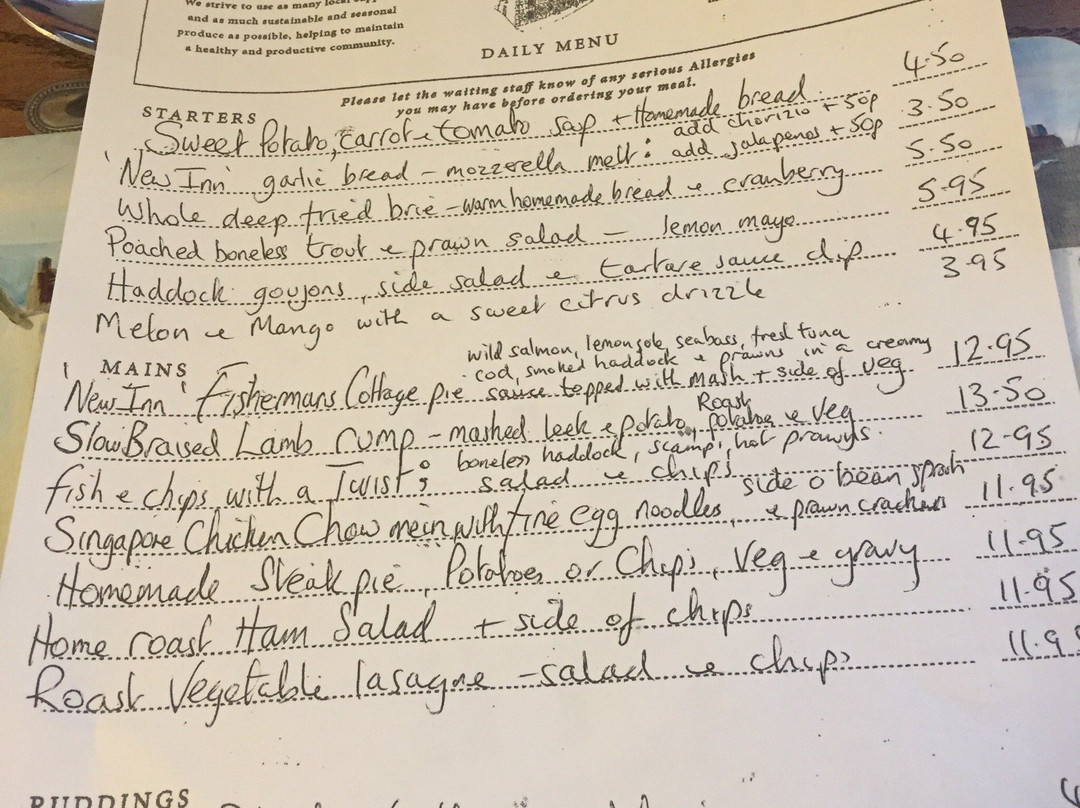 We strive to use as many local
and as much sustainable and seasonal
produce as possible, helping to maintain
a healthy and productive community.
DAILY MENU
Please let the waiting staff know of any serious Allergies
you may have before ordering your meal.
STARTERS
Sweet Potato, Carrot & tomato soup + Homemade bread 4.50
add chorizio + 50p
'New Inn' garlic bread - mozzerella melt: add jalapenos + 50p 3.50
Whole deep fried brie - warm homemade bread & cranberry 5.50
Poached boneless trout & prawn salad - lemon mayo 5.95
Haddock goujons, side salad & tartare sauce dip 4.95
Melon & Mango with a sweet citrus drizzle 3.95
MAINS
wild salmon, lemonsole, seabass, fresh tuna
cod, smoked haddock & prawns in a creamy
'New Inn' Fishermans Cottage pie sauce topped with Mash + side of veg 12.95
Roast
Slow Braised Lamb rump - mashed leek & potato, potatoe & Veg 13.50
boneless haddock, scampi, hot prawns.
fish & chips with a Twist: salad & chips 12.95
side o bean sprouts
Singapore Chicken Chow mein with fine egg noodles, & prawn crackers 11.95
Homemade Steak pie, Potatoes or Chips, Veg & gravy 11.95
Home roast Ham Salad + side of chips 11.95
Roast Vegetable lasagne - salad & chips 11.9
PUDDINGS